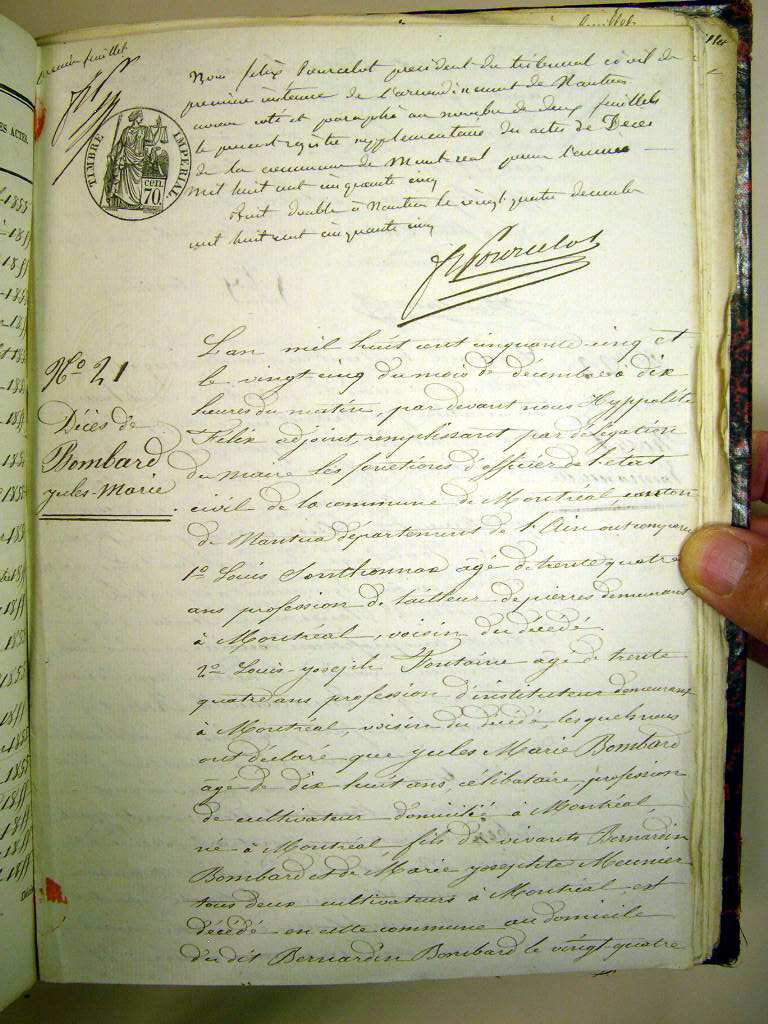 Premier feuillet
Nous felix Pourcelot president du tribunal civil de
premiere instance de l'arrondissement de Nantua
avons coté et paraphé au nombre de deux feuillets
le present registre supplementaire des actes de Déces
de la commune de Montreal pour l'année
mil huit cent cinquante cinq
fait double à Nantua le vingt quatre decembre
mil huit cent cinquante cinq
F Pourcelot
TIMBRE IMPERIAL
CEN. 70
ES ACTES
N.o 21
Décès de
Bombard
Jules-Marie
L'an mil huit cent cinquante cinq et
le vingt cinq du mois de décembre à dix
heures du matin, par devant nous Hyppolite
Felix adjoint remplissant par délégation
du maire les fonctions d'officier de l'état
civil de la commune de Montréal canton
de Nantua département de l'Ain ont comparu
1.o Louis Sonthonnax âgé de trente quatre
ans profession de tailleur de pierres demeurant
à Montréal, voisin du décédé
2.o Louis-Joseph Fontaine âgé de trente
quatre ans, profession d'instituteur demeurant
à Montréal, voisin du décédé, lesquels nous
ont déclaré que Jules Marie Bombard
âgé de dix huit ans, célibataire, profession
de cultivateur domicilié à Montréal,
né à Montréal, fils de vivants Bernardin
Bombard et de Marie Josephte Meunier
tous deux cultivateurs à Montréal est
décédé en cette commune au domicile
du dit Bernardin Bombard le vingt quatre